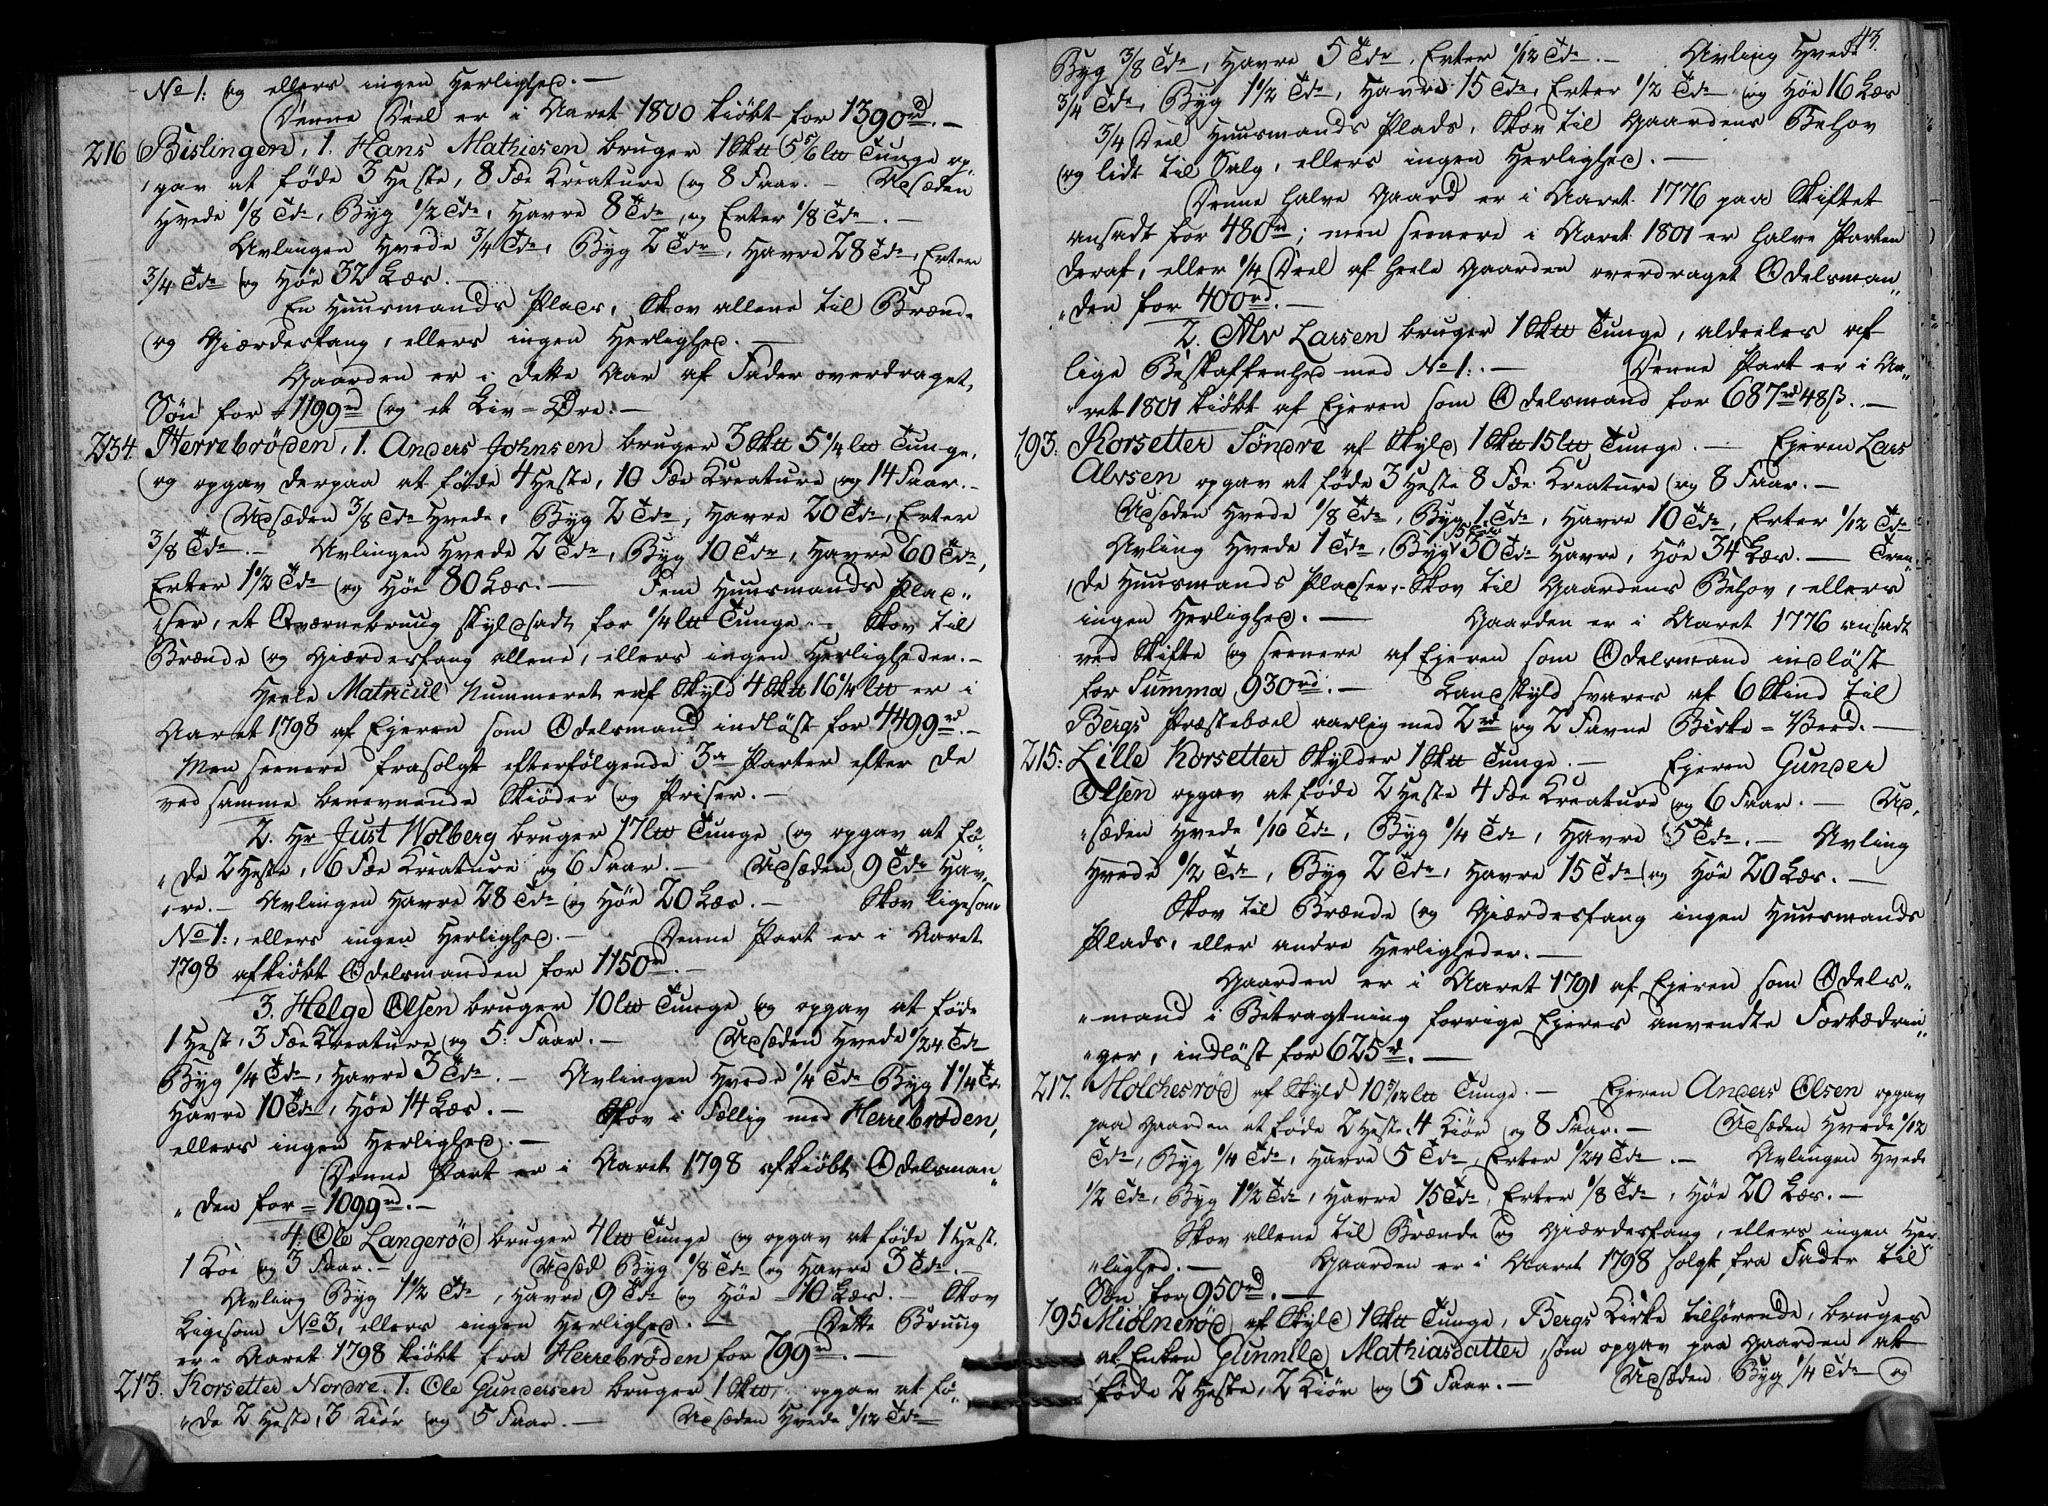 No 1: og ellers ingen Herlighed. —
Denne Deel er i Aaret 1800 kiöbt for 1390 rd. —
216 Bislingen, 1. Hans Mathiesen bruger 1 Sktt 5 5/6 ltt Tunge op,,
,,gav at föde 3 Heste, 8 Fæe Kreature og 8 Faar. — Udsæden
Hvede 1/8 Tde, Byg 1/2 Tde, Havre 8 Tde, og Erter 1/8 Tde. —
Avlingen Hvede 3/4 Tde, Byg 2 Tde, Havre 28 Tde, Erter
3/4 Tde og Höe 32 Læs. —
En Huusmands Plads, Skov allene til Brænde
og Giærdesfang, ellers ingen Herlighed. —
Gaarden er i dette Aar af Fader overdraget
Sön for = 1199 rd og et Liv = Øre. —
234. Herrebröden, 1. Anders Johnsen bruger 3 Sktt 5 1/4 ltt Tunge,
og opgav derpaa at föde 4 Heste, 10 Fæe Kreature og 14 Faar. —
Udsæden 3/8 Tde Hvede, Byg 2 Tde, Havre 20 Tde, Erter
3/8 Tde. — Avlingen Hvede 2 Tde, Byg 10 Tde, Havre 60 Tde,
Erter 1 1/2 Tde og Höe 80 Læs. — Fem Huusmands Plad,,
,,ser, et Qværnebruug skyldsadt for 1/4 ltt Tunge. — Skov til
Brænde og Giærdesfang allene, ellers ingen Herligheder. —
Heele Matricul Nummeret af Skyld 4 Sktt 16 1/4 ltt er i
Aaret 1798 af Ejeren som Odelsmand indlöst for 4499 rd. —
Men seenere frasolgt efterfölgende 3de Parter efter de
ved samme benevnende Skiöder og Priser. —
2. Hr Just Wolberg bruger 17 ltt Tunge og opgav at fö,,
,,de 2 Heste, 6 Fæe Kreature og 6 Faar. — Udsæden 9 Tde Hav,,
,,re. — Avlingen Havre 28 Tde og Höe 20 Læs. — Skov ligesom
No 1:, ellers ingen Herlighed. — Denne Part er i Aaret
1798 afkiöbt Odelsmanden for 1150 rd. —
3. Helge Olsen bruger 10 ltt Tunge og opgav at föde
1 Hest, 3 Fæe Kreature og 5: Faar. — Udsæden Hvede 1/24 Tde
Byg 1/4 Tde, Havre 3 Tde. — Avlingen Hvede 1/4 Tde Byg 1 1/4 Tde
Havre 10 Tde, Höe 14 Læs. — Skov i Fællig med Herrebröden,
ellers ingen Herlighed. —
Denne Part er i Aaret 1798 afkiöbt Odelsman,,
,,den for = 1099 rd. —
4. Ole Langeröd bruger 4 ltt Tunge og opgav at föde 1 Hest.
1 Koe og 3 Faar. — Udsæd Byg 1/8 Tde og Havre 3 Tde. —
Avling Byg 1 1/2 Tde, Havre 9 Tde og Höe = 10 Læs. — Skov
Ligesom No 3, ellers ingen Herlighed. — Dette Bruug
er i Aaret 1798 kiöbt fra Herrebröden for 799 rd. —
213. Korsetter Nordre. 1. Ole Gundersen bruger 1 Skt, opgav at fö,,
,,de 2 Heste, 3 Kiör og 5 Faar. — Udsæden Hvede 1/12 Tde
43.
Byg 3/8 Tde, Havre 5 Tde, Erter 1/12 Tde. — Avling Hvede
3/4 Tde, Byg 1 1/2 Tde, Havre 15 Tde, Erter 1/2 Tde og Höe 16 Læs
3/4 Deel Huusmands Plads, Skov til Gaardens Behov
og lidt til Salg, ellers ingen Herlighed. —
Denne halve Gaard er i Aaret 1776 paa Skiftet
ansadt for 480 rd; men seenere i Aaret 1801 er halve Parten
deraf, eller 1/4 Deel af heele Gaarden overdraget Odelsman,,
,,den for 400 rd. —
2. Alv Larsen bruger 1 Sktt Tunge, aldeeles af
lige Beskaffenhed med No 1: — Denne Part er i Aa,,
,,ret 1801 kiöbt af Ejeren som Odelsmand for 687 rd 48 ß. —
193. Korsetter Söndre af Skyld 1 Sktt 15 ltt Tunge. — Ejeren Lars
Alvsen opgav at föde 3 Heste 8 Fæe Kreature og 8 Faar. —
Udsæden Hvede 1/8 Tde, Byg 1 Tde, Havre 10 Tde, Erter 1/12 Tde
Avling Hvede 1 Tde, Byg 5 Tde 30 Tde Havre, Höe 34 Læs. — Tren,,
,,de Huusmands Pladser, Skov til Gaardens Behov, ellers
ingen Herlighed. — Gaarden er i Aaret 1776 ansadt
ved Skifte og seenere af Ejeren som Odelsmand indlöst
for Summa 930 rd. — Landskyld svares af 6 Skind til
Bergs Præsteboel aarlig med 2 rd og 2 Favne Birke = Veed. —
215: Lille Korsetter Skylder 1 Sktt Tunge. — Ejeren Gunder
Olsen opgav at föde 2 Heste 4 Fæe Kreature og 6 Faar. — Ud,,
,,sæden Hvede 1/10 Tde, Byg 1/4 Tde, Havre 5 Tde. — Avling
Hvede 1/2 Tde, Byg 2 Tde, Havre 15 Tde og Höe 20 Læs. —
Skov til Brænde og Giærdesfang ingen Huusmands
Plads, eller andre Herligheder. —
Gaarden er i Aaret 1791 af Ejeren som Odels,,
,,mand i Betragtning forrige Ejeres anvendte Forbædrin,,
,,ger, indlöst for 625 rd. —
217. Molchesröd af Skyld 10 5/12 ltt Tunge. — Ejeren Anders Olsen opgav
paa Gaarden at föde 2 Heste 4 Kiör og 8 Faar. — Udsæden Hvede 1/12
Tde, Byg 1/4 Tde, Havre 5 Tde, Erter 1/24 Tde. — Avlingen Hvede
1/2 Tde, Byg 1 1/2 Tde, Havre 15 Tde, Erter 1/8 Tde, Höe 20 Læs. —
Skov allene til Brænde og Giærdesfang, ellers ingen Her,,
,,lighed. — Gaarden er i Aaret 1798 solgt fra Fader til
Sön for 950 rd. —
195 Miölneröd af Skyld 1 Sktt Tunge, Bergs Kirke tilhörende, bruges
af Enken Gunnild Mathiasdatter, som opgav paa Gaarden at
föde 2 Heste, 2 Kiör og 5 Faar. — Udsæden Byg 1/4 Tde og